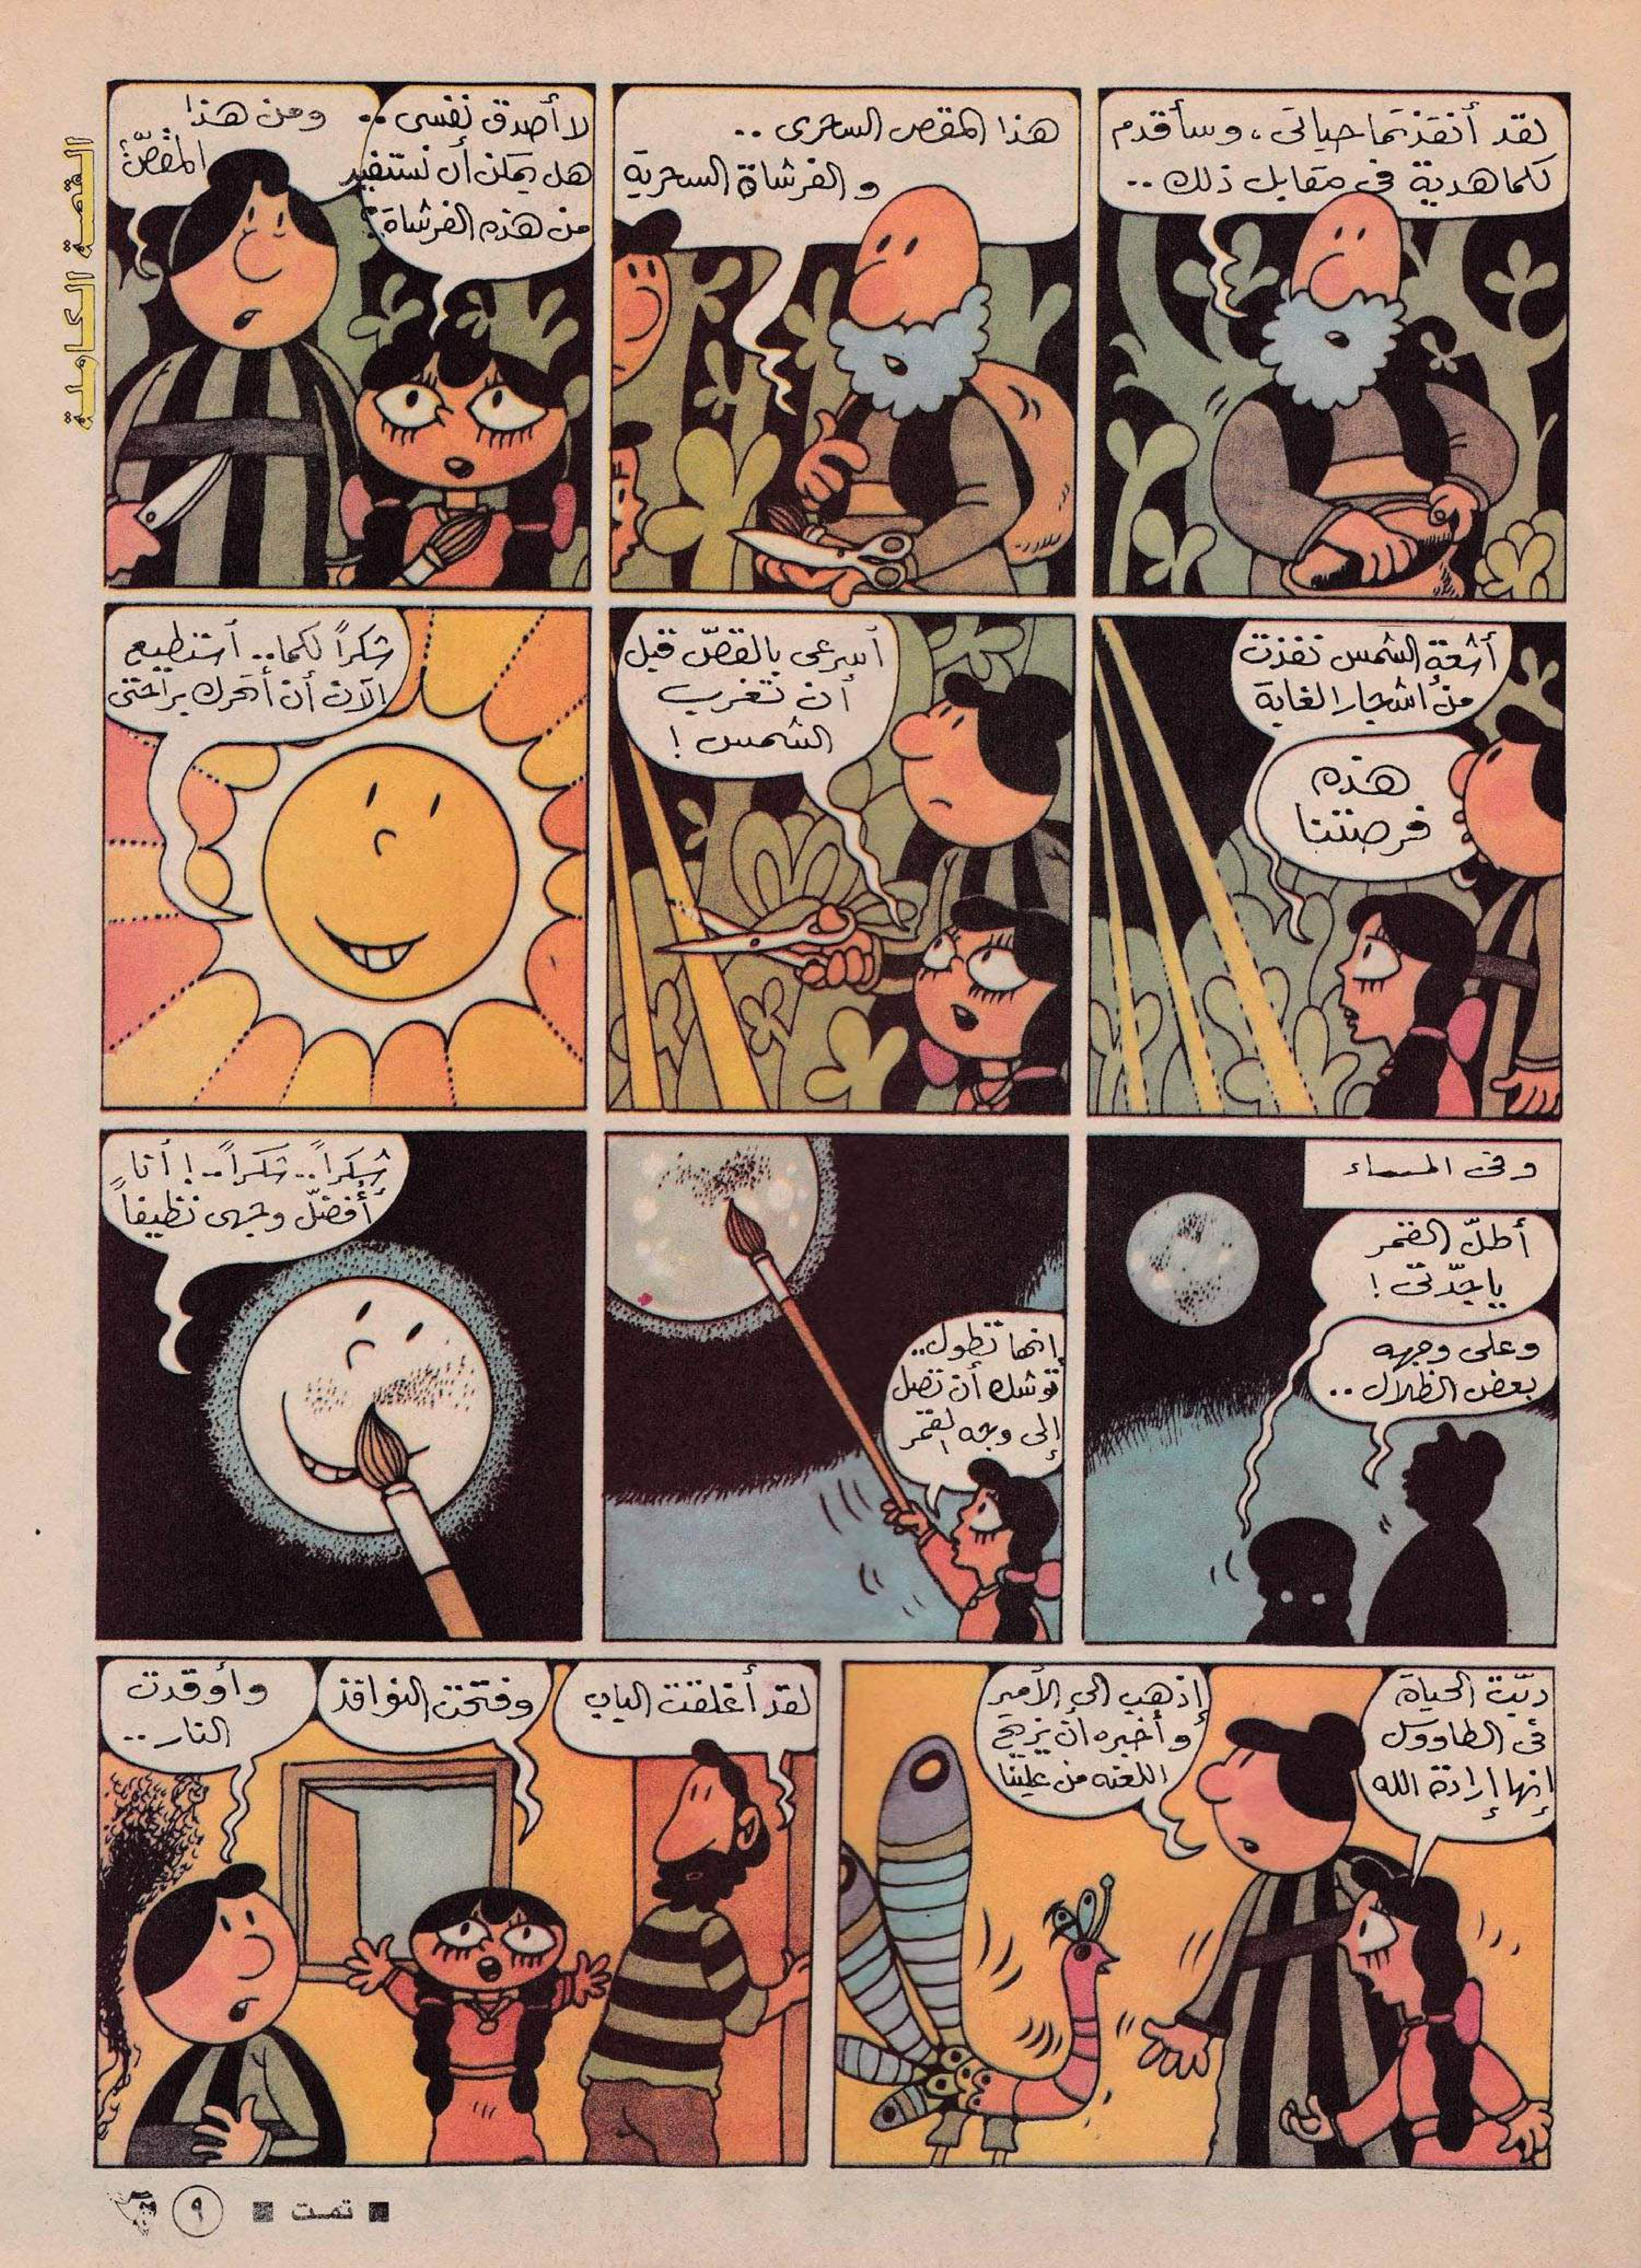 القصة الكاملة
لقد أنقذتما حياتى، وسأقدم
لكما هدية فى مقابل ذلك..
هذا المقص السحرى ..
والفرشاة السحرية
لا أصدق نفسى ..
هل يمكن أن نستفيد
من هذه الفرشاة؟
ومن هذا
المقصّ؟
أشعة الشمس نفذت
من أشجار الغابة
هذه
فرصتنا
أسرعى بالقصّ قبل
أن تغرب
الشمس!
شكراً لكما.. أستطيع
الآن أن أتحرك براحتى
وفى المساء
أطلّ القمر
ياجدّتى!
وعلى وجهه
بعض الظلال..
إنها تطول..
توشك أن تصل
إلى وجه القمر
شكراً.. شكراً..! أنا
أفضّل وجهى نظيفاً
دبّت الحياة
فى الطاووس
إنها إرادة الله
إذهب إلى الأمير
وأخبره ان يزيح
اللعنه من علينا
لقد أغلقت الباب
وفتحت النوافذ
وأوقدت
النار..
تمت
٩